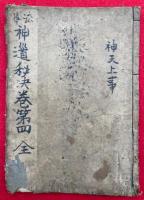 神道秘決巻第四 全
神天上事